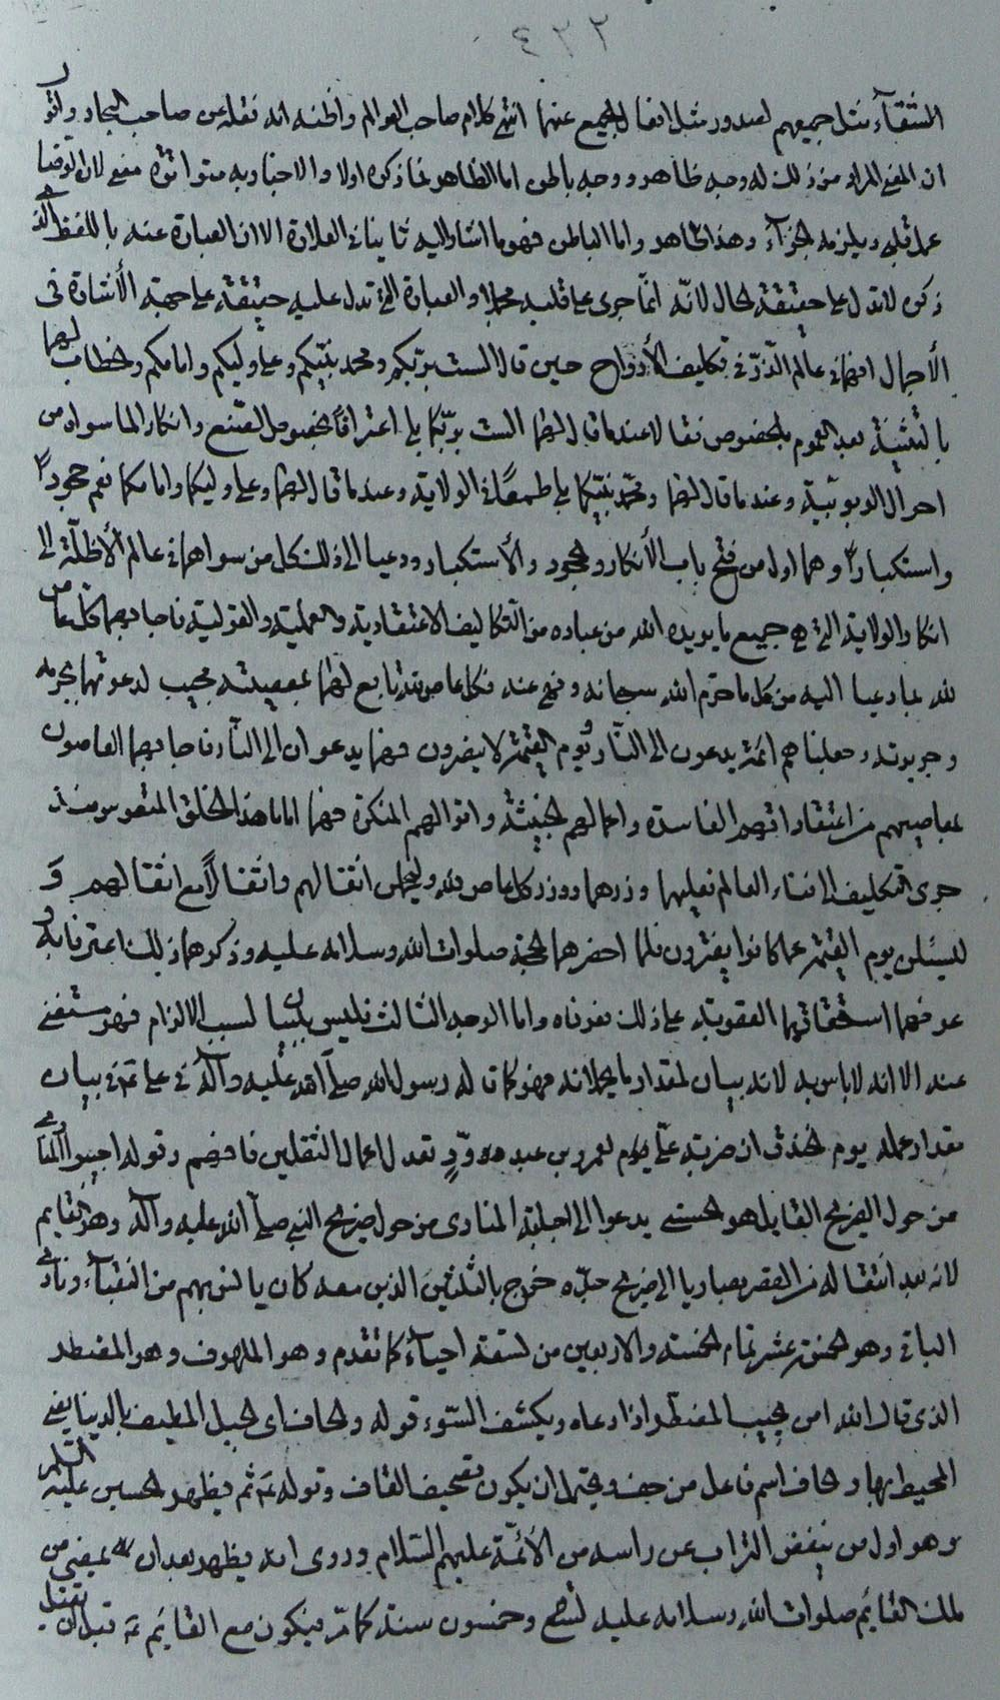 ٤٢٢
الشقاء مثل جميعهم لصدور مثل افعال الجميع عنهما انتهى كلام صاحب العوالم واظنه انه نقله عن صاحب البحار واقول
ان المعنى المراد من ذلك له وجه ظاهر ووجه باطن اما الظاهر فما ذكره اولا والاخبار به متواترة معنى لان الرضا
عمل قلبى ويلزمه الجزآء وهذا ظاهر واما الباطن فهو ما اشار اليه ثانيا فى العلاوة الا ان العبارة عنه باللفظ الذى
ذكره لا تدل على حقيقة الحال لانّه انّما جرى على قلبه مجملا والعبارة التى تدل عليه حقيقة على جهة الأشارة فى
الأجمال انهما فى عالم الذّرّ فى تكليف الأرواح حين قال الست بربّكم ومحمد نبيّكم وعلى وليكم وامامكم والخطاب لهما
بالتثنية بعد العموم بالخصوص فقالا عند ما قال لهما الست بربّكما بلى اعترافاً بخصوص الصّنع وانكار لما سواه من
احوال الربوبيّة وعند ما قال لهما ومحمّد نبيّكما بلى طمعاً فى الولاية وعند ما قال لهما وعلى وليكما وامامكما نعم جحوداً
واستكباراً وهما اول من فتح باب الأنكار والجحود والأستكبار ودعيا الى ذلك كل من سواهما فى عالم الأظلّة الى
انكار الولاية التى هى جميع ما يريده الله من عباده من التكاليف الاعتقادية والعملية والقولية فاجابهما كل عاص
لله بما دعيا اليه من كل ما حرّم الله سبحانه ونهى عنه فكل عاص لله تابع لهما بمعصيته مجيب لدعوتهما بجرمه
وجريرته وجعلناهم ائمّة يدعون الى النّار ويوم القيمة لا ينصرون فهما يدعوان الى النّار فاجابهما العاصون
بمعاصيهم من اعتقاداتهم الفاسدة واعمالهم الخبيثة واقوالهم المنكرة فهما اماما هذا الخلق المنكوس منذ
جرى التكليف الى فناء العالم فعليهما وزرهما ووزر كل عاص لله وليحملن اثقالهم واثقالاً مع اثقالهم وَ
ليسئلن يوم القيمة عما كانوا يفترون فلما احضرهما الحجة صلوات الله وسلامه عليه وذكرهما ذلك اعترفا به و
عرفهما استحقاقهما العقوبة على ذلك فعرفاه واما الوجه الثالث فليس بياناً لسبب الالزام فهو مستغنى
عنه الا انه لا باس به لانه بيان لمقدار ما يحملانه فهو كما قاله رسول الله صلى الله عليه وآله فى على عه فى بيان
مقدار عمله يوم الخندق ان ضربة علّى يوم لعمرو بن عبد ودّ تعدل اعمال الثقلين فافهم وقوله اجيبوا
من حول الضريح القايل هو الحسنى يدعو الى اجابة المنادى من حول ضريح النبى صلى الله عليه وآله وهو القايم
لانه بعد انتقاله من القصر بصاريا الى ضريح جدّه خرج بالثلثين الذين معه كان يانس بهم من النقباء وتأتى
الباقى وهو الخمسة عشر تمام الخمسة والاربعين من تسعة احياء كما تقدم وهو الملهوف وهو المضطر
الذى قال الله امن يجيب المضطر اذا دعاه ويكشف السّوء قوله والحاف اى الجبل المطيف بالدينا يعنى
المحيط بها والحاف اسم فاعل من حف ويحتمل ان يكون تصحيف القاف وقوله عه ثم يظهر الحسين عليه السّلم
وهو اول من ينفض التراب عن راسه من الأئمّة عليهم السّلام وروى انه يظهر بعد ان يمضى من
ملك القايم صلوات الله وسلامه عليه تسع وخمسون سنة كما مرّ فيكون مع القائم عه قبل ان يقتل